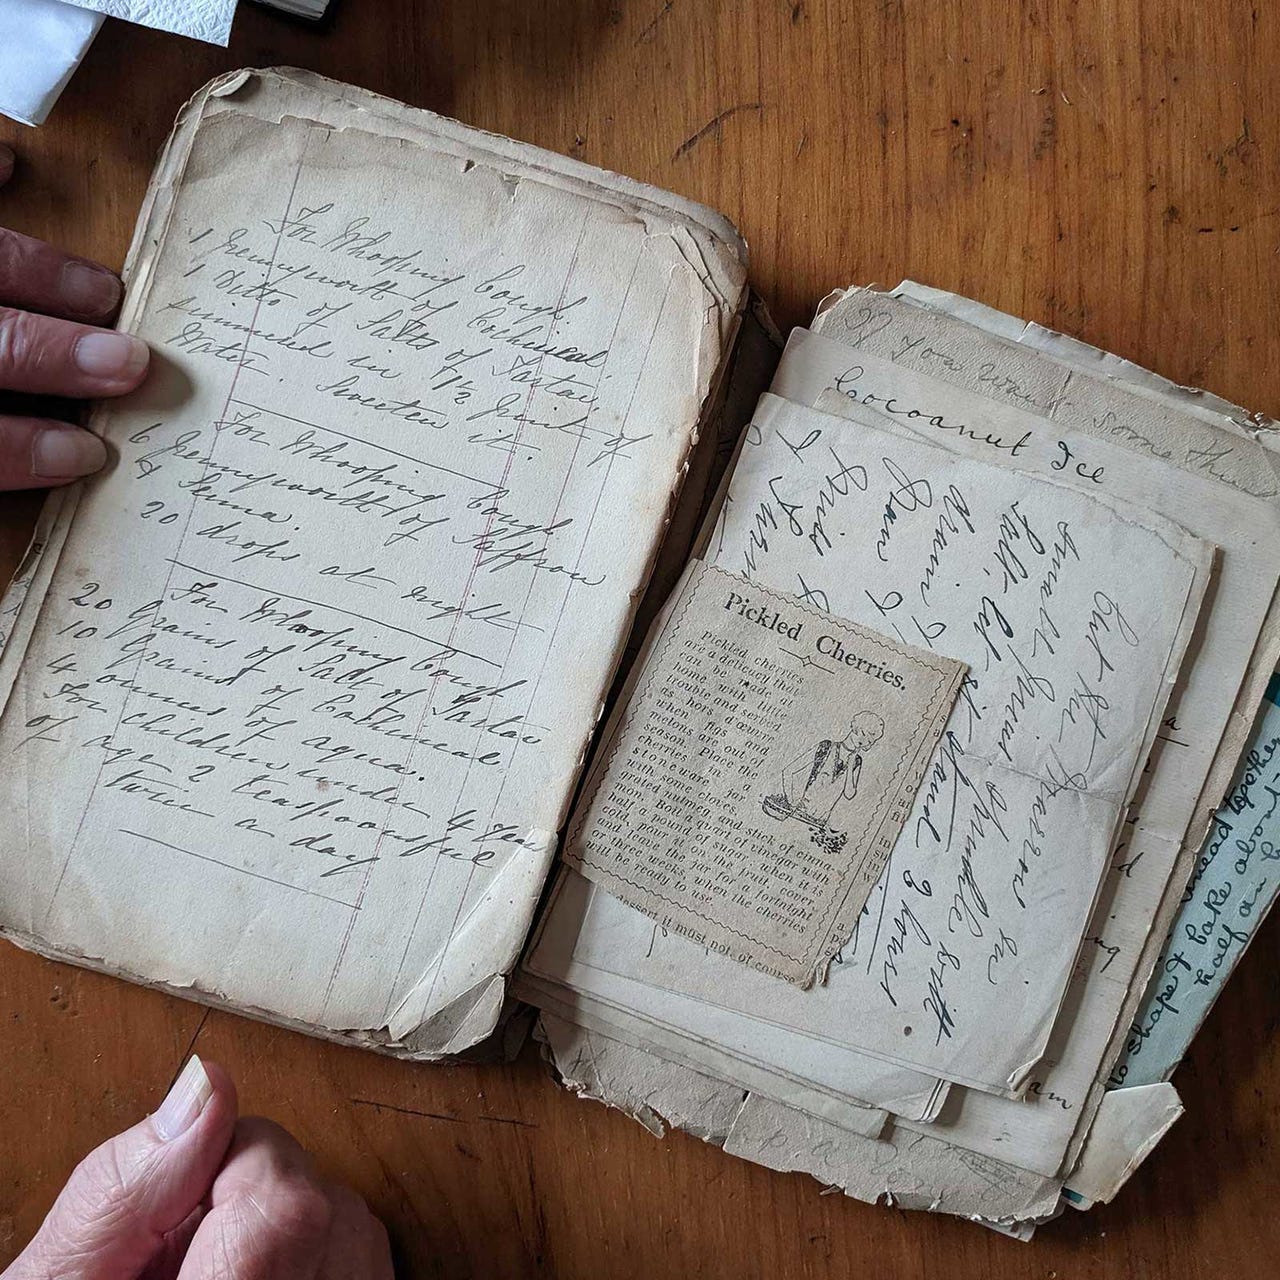 For Whooping Cough
1 Pennyworth of Cochineal
1 Ditto of Salts of Tartar
simmered in 1½ Pint of
Water. Sweeten it.
For Whooping Cough
6 Pennyworth of Saffron
4 Senna.
20 drops at night
For Whooping Cough
20 Grains of Salts of Tartar
10 Grains of Cochineal
4 ounces of aqua.
For children under 4 years
of age 2 teaspoonsful
twice a day
If you want some
Cocoanut Ice
Cut the Marrow in
small pieces sprinkle with
Salt, let it stand
hours
Pickled Cherries.
Pickled cherries
are a delicacy that
can be made at
home with little
trouble and served
as hors d'œuvre
when figs and
melons are out of
season. Place the
cherries in a
stoneware jar
with some cloves,
grated nutmeg, and stick of cinna-
mon. Boil a quart of vinegar with
half a pound of sugar, when it is
cold, pour it on the fruit, cover
and leave the jar for a fortnight
or three weeks, when the cherries
will be ready to use.
dessert it must not, of course
to shape & bake about
half an